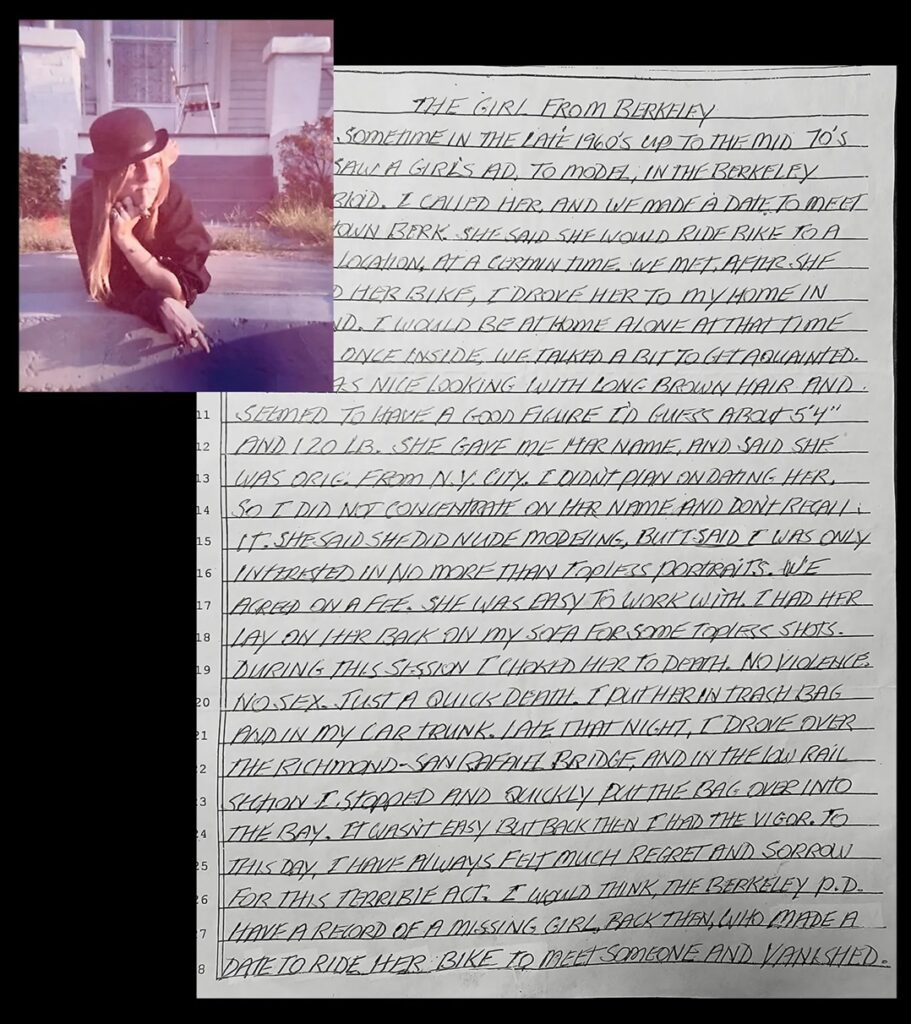 THE GIRL FROM BERKELEY
SOMETIME IN THE LATE 1960'S UP TO THE MID 70'S
SAW A GIRLS AD, TO MODEL, IN THE BERKELEY
I CALLED HER, AND WE MADE A DATE TO MEET
BERK. SHE SAID SHE WOULD RIDE BIKE TO A
LOCATION, AT A CERTAIN TIME. WE MET, AFTER SHE
HER BIKE, I DROVE HER TO MY HOME IN
I WOULD BE AT HOME ALONE AT THAT TIME
ONCE INSIDE, WE TALKED A BIT TO GET AQUAINTED.
NICE LOOKING WITH LONG BROWN HAIR AND
11 SEEMED TO HAVE A GOOD FIGURE I'D GUESS ABOUT 5'4"
12 AND 120 LB. SHE GAVE ME HER NAME, AND SAID SHE
13 WAS ORIG. FROM N.Y. CITY. I DIDN'T PLAN ON DATING HER,
14 SO I DID NOT CONCENTRATE ON HER NAME AND DON'T RECALL
15 IT. SHE SAID SHE DID NUDE MODELING, BUT I SAID I WAS ONLY
16 INTERESTED IN NO MORE THAN TOPLESS PORTRAITS. WE
17 AGREED ON A FEE. SHE WAS EASY TO WORK WITH. I HAD HER
18 LAY ON HER BACK ON MY SOFA FOR SOME TOPLESS SHOTS.
19 DURING THIS SESSION I CHOKED HER TO DEATH. NO VIOLENCE.
20 NO SEX. JUST A QUICK DEATH. I PUT HER IN TRACH BAG
21 AND IN MY CAR TRUNK. LATE THAT NIGHT, I DROVE OVER
22 THE RICHMOND-SAN RAFAEL BRIDGE, AND IN THE LOW RAIL
23 SECTION I STOPPED AND QUICKLY PUT THE BAG OVER INTO
24 THE BAY. IT WASN'T EASY BUT BACK THEN I HAD THE VIGOR. TO
25 THIS DAY, I HAVE ALWAYS FELT MUCH REGRET AND SORROW
26 FOR THIS TERRIBLE ACT. I WOULD THINK, THE BERKELEY P.D.
7 HAVE A RECORD OF A MISSING GIRL, BACK THEN, WHO MADE A
8 DATE TO RIDE HER BIKE TO MEET SOMEONE AND VANISHED.